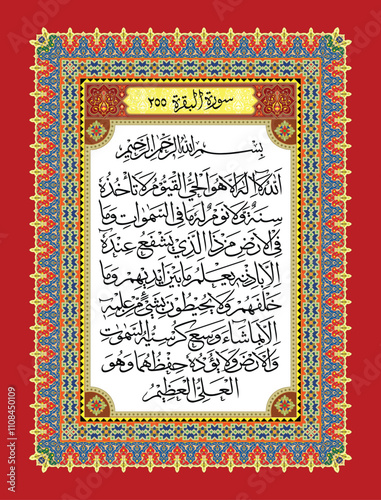 سورة البقرة ٢٥٥
بِسْمِ اللهِ الرَّحْمٰنِ الرَّحِيْمِ
اَللهُ لَا اِلٰهَ اِلَّا هُوَ اَلْحَيُّ الْقَيُّوْمُ لَا تَاْخُذُهُ
سِنَةٌ وَلَا نَوْمٌ لَهُ مَا فِي السَّمٰوَاتِ وَمَا
فِي الْاَرْضِ مَنْ ذَا الَّذِيْ يَشْفَعُ عِنْدَهُ
اِلَّا بِاِذْنِهِ يَعْلَمُ مَا بَيْنَ اَيْدِيْهِمْ وَمَا
خَلْفَهُمْ وَلَا يُحِيْطُوْنَ بِشَيْءٍ مِنْ عِلْمِهِ
اِلَّا بِمَا شَاءَ وَسِعَ كُرْسِيُّهُ السَّمٰوَاتِ
وَالْاَرْضَ وَلَا يَؤُدُهُ حِفْظُهُمَا وَهُوَ
الْعَلِيُّ الْعَظِيْمُ
Adobe Stock | #1108450109